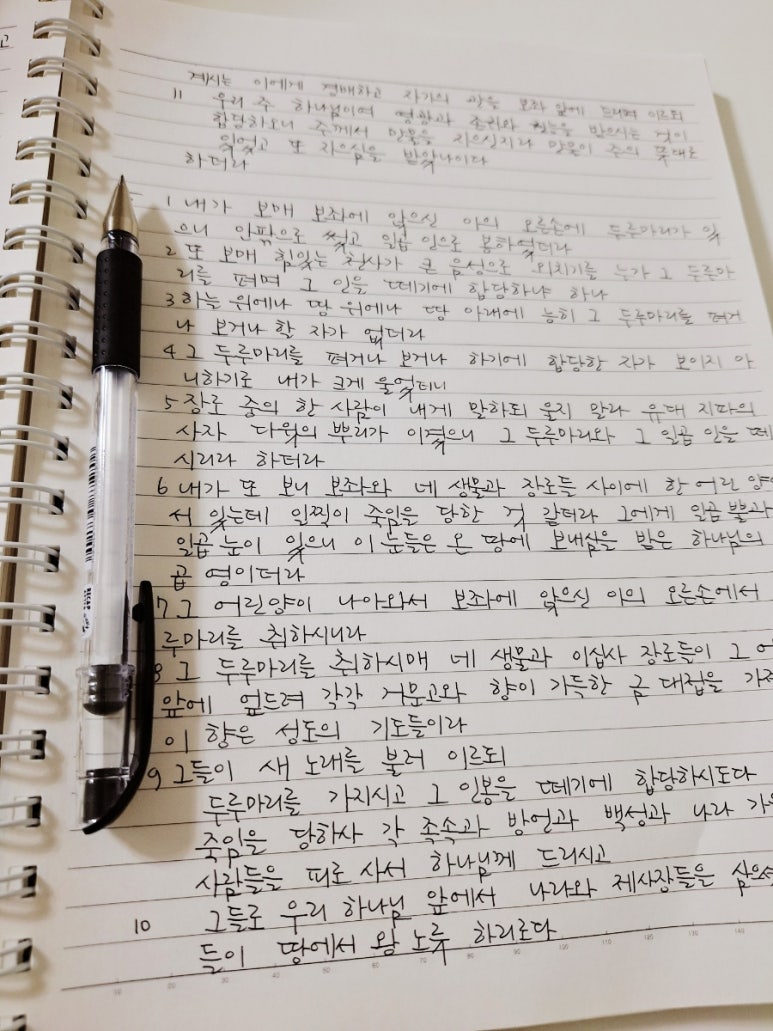 계시는 이에게 경배하고 자기의 관을 보좌 앞에 드리며 이르되
11 우리 주 하나님이여 영광과 존귀와 권능을 받으시는 것이
합당하오니 주께서 만물을 지으신지라 만물이 주의 뜻대로
있었고 또 지으심을 받았나이다
하더라
1 내가 보매 보좌에 앉으신 이의 오른손에 두루마리가 있
으니 안팎으로 썼고 일곱 인으로 봉하였더라
2 또 보매 힘있는 천사가 큰 음성으로 외치기를 누가 그 두루마
리를 펴며 그 인을 떼기에 합당하냐 하나
3 하늘 위에나 땅 위에나 땅 아래에 능히 그 두루마리를 펴거
나 보거나 할 자가 없더라
4 그 두루마리를 펴거나 보거나 하기에 합당한 자가 보이지 아
니하기로 내가 크게 울었더니
5 장로 중의 한 사람이 내게 말하되 울지 말라 유대 지파의
사자 다윗의 뿌리가 이겼으니 그 두루마리와 그 일곱 인을 떼
시리라 하더라
6 내가 또 보니 보좌와 네 생물과 장로들 사이에 한 어린 양이
서 있는데 일찍이 죽임을 당한 것 같더라 그에게 일곱 뿔과
일곱 눈이 있으니 이 눈들은 온 땅에 보내심을 받은 하나님의
곱 영이더라
7 그 어린양이 나아와서 보좌에 앉으신 이의 오른손에서
루마리를 취하시니라
8 그 두루마리를 취하시매 네 생물과 이십사 장로들이 그 어
앞에 엎드려 각각 거문고와 향이 가득한 금 대접을 가졌
이 향은 성도의 기도들이라
9 그들이 새 노래를 불러 이르되
두루마리를 가지시고 그 인봉을 떼기에 합당하시도다
죽임을 당하사 각 족속과 방언과 백성과 나라 가운
사람들을 피로 사서 하나님께 드리시고
10 그들로 우리 하나님 앞에서 나라와 제사장들을 삼으셨
들이 땅에서 왕 노릇 하리로다